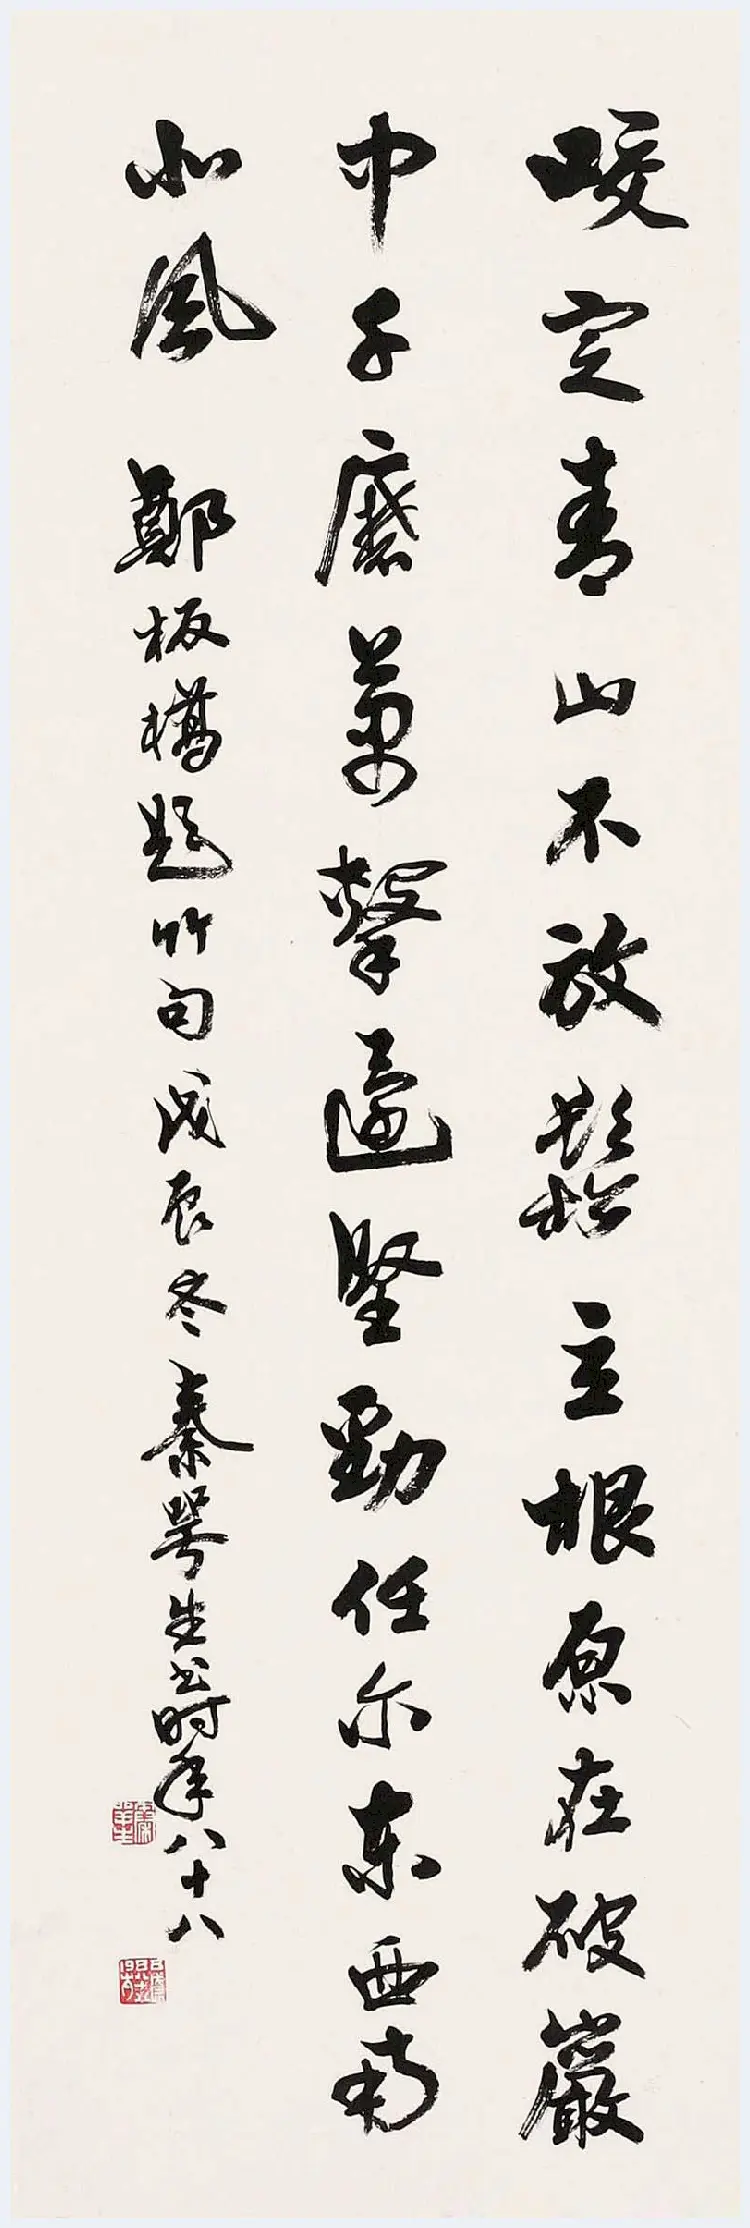 咬定青山不放鬆立根原在破巖
中千磨萬擊還堅勁任尔東西南
北風 鄭板橋題竹句戊辰冬秦咢生書時年八十八